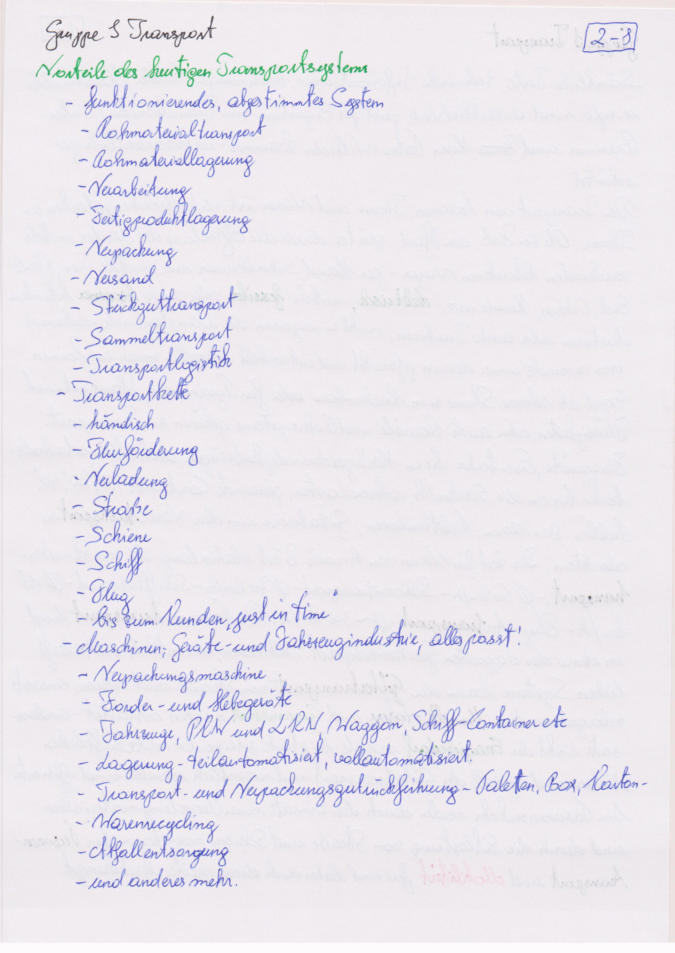 Gruppe S Transport
2-8
Vorteile des heutigen Transportsystems
- funktionierendes, abgestimmtes System
- Rohmaterialtransport
- Rohmateriallagerung
- Verarbeitung
- Fertigproduktlagerung
- Verpackung
- Versand
- Stückguttransport
- Sammeltransport
- Transportlogistik
- Transportkette
- händisch
- Flurförderung
- Verladung
- Straße
- Schiene
- Schiff
- Flug
- bis zum Kunden, just in time"
- Maschinen; Geräte- und Fahrzeugindustrie, alles passt!
- Verpackungsmaschine
- Förder- und Hebegeräte
- Fahrzeuge, PKW und LKW, Waggon, Schiff-Container etc
- Lagerung - teilautomatisiert, vollautomatisiert.
- Transport- und Verpackungsgutrückführung - Paletten, Box, Karton-
- Warenrecycling
- Abfallentsorgung
- und anderes mehr.